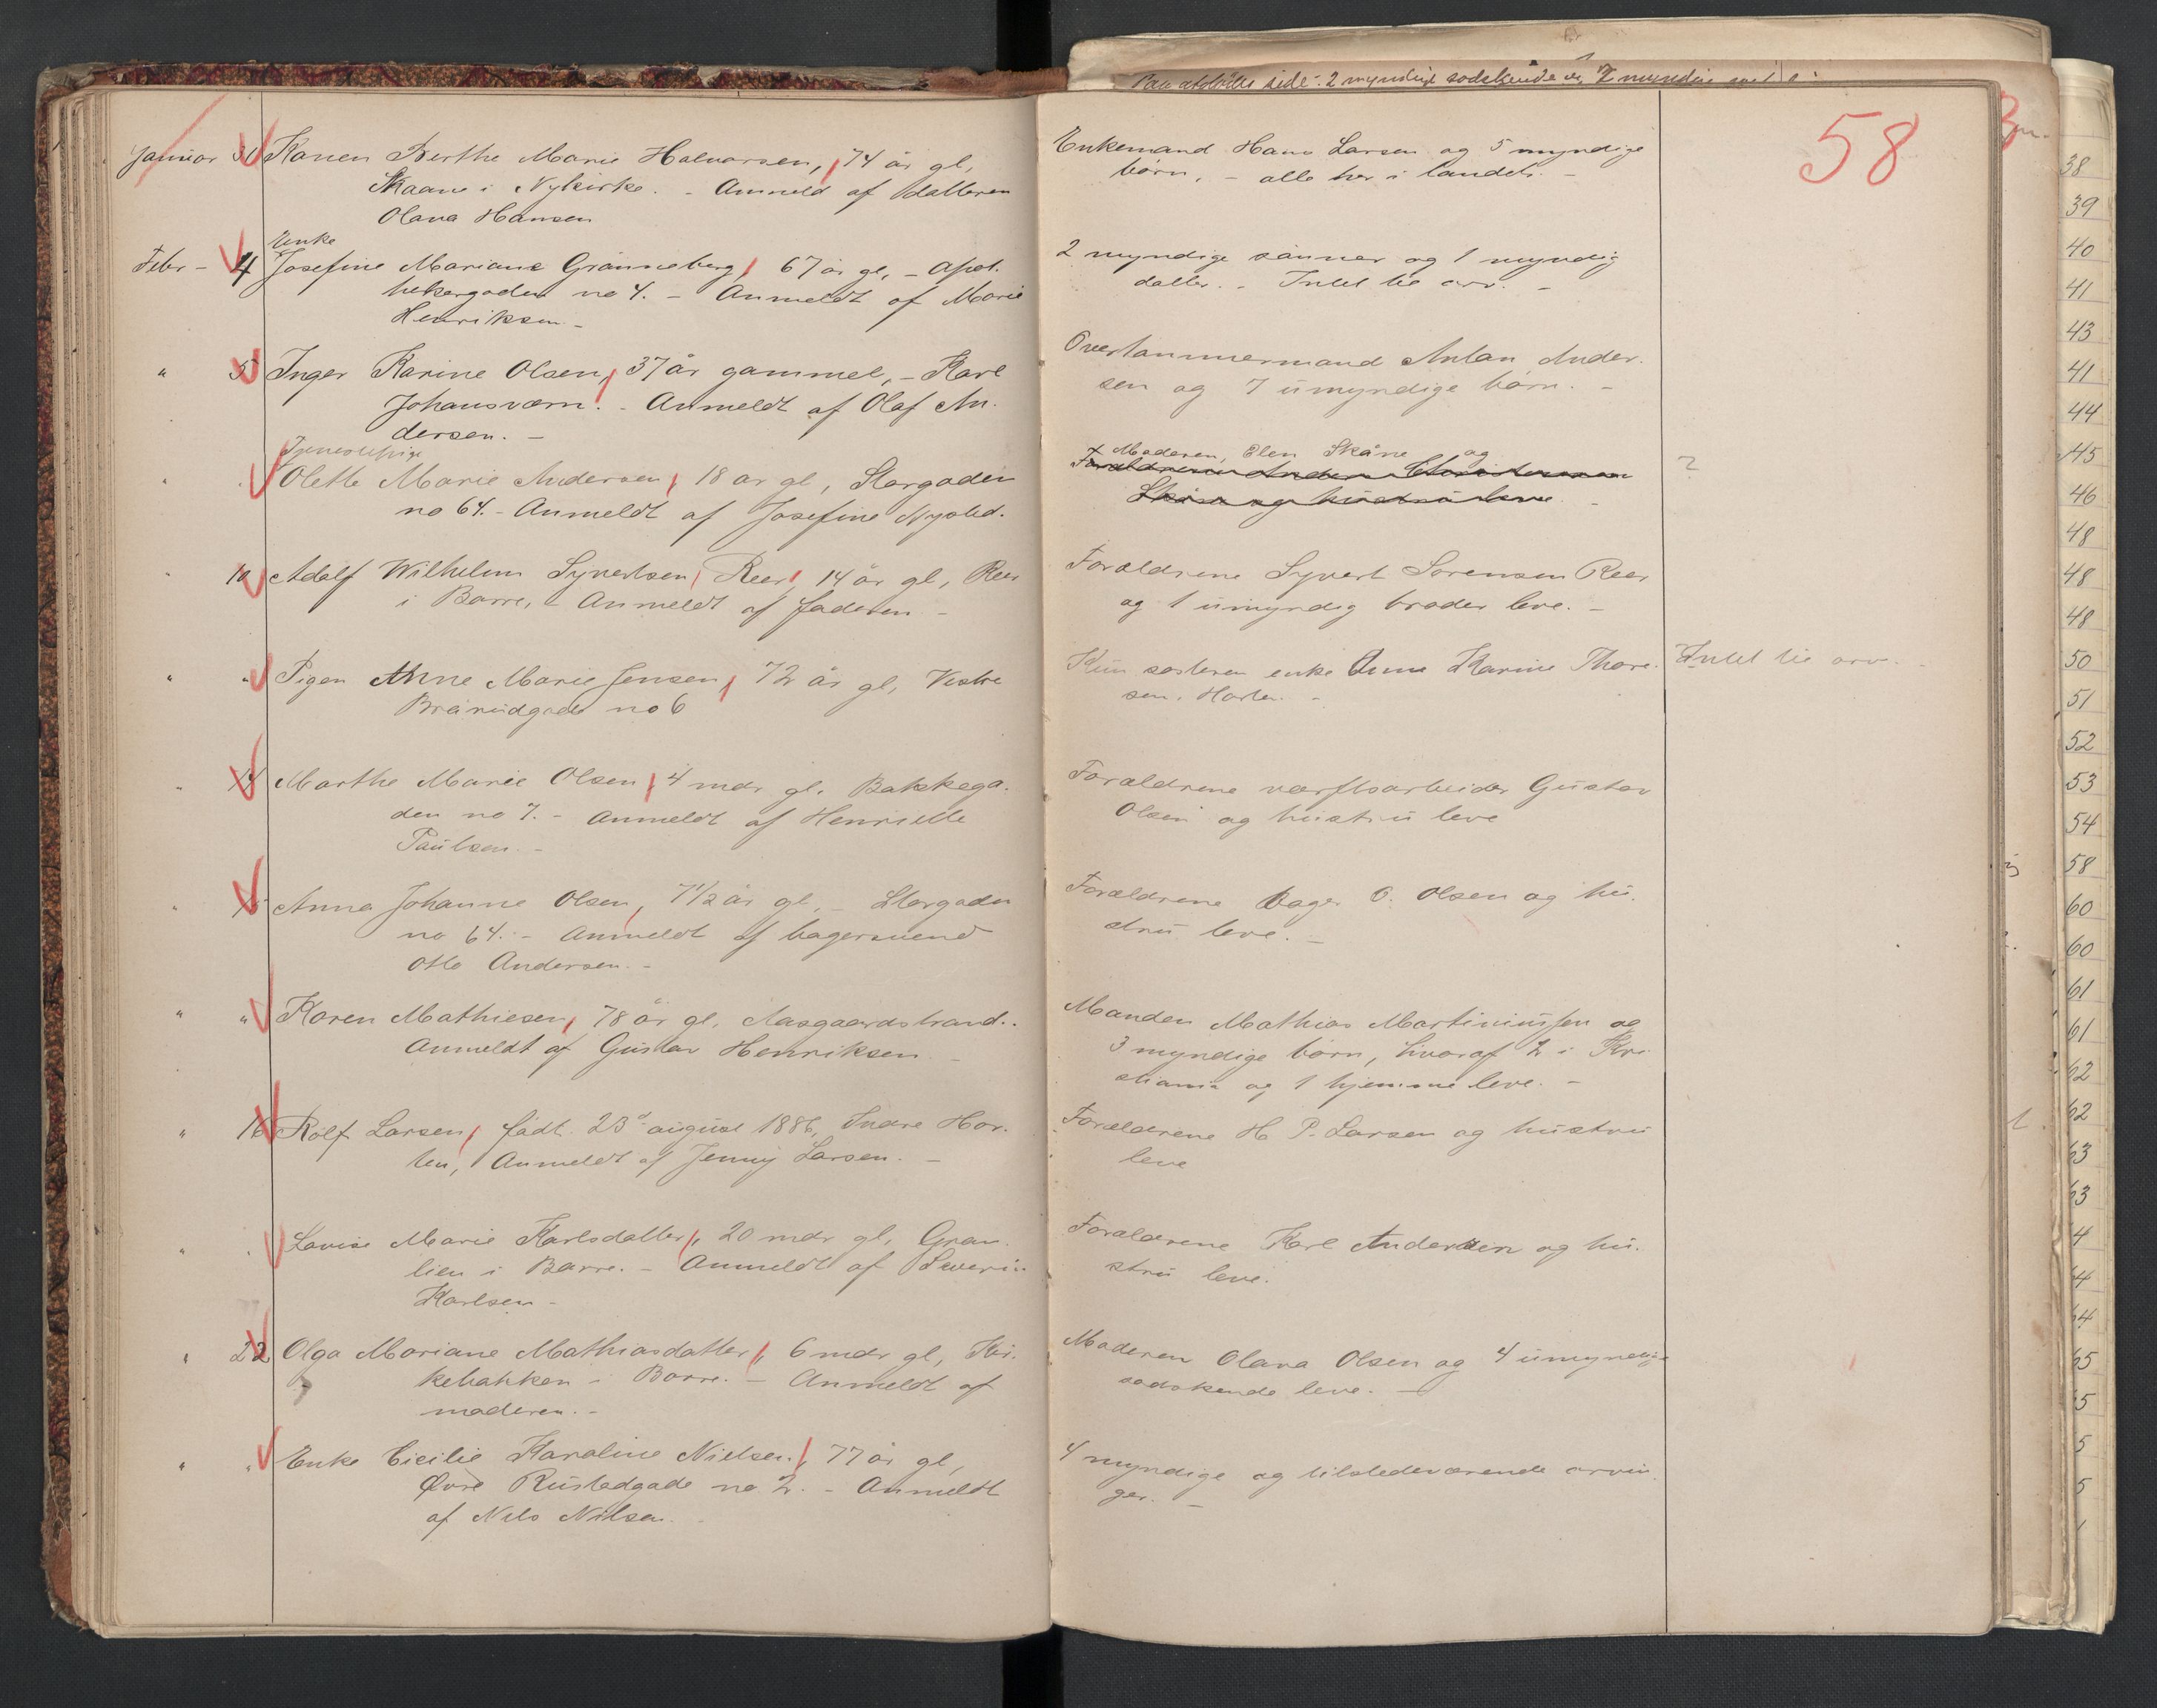 Januar 31 Karen Berthe Marie Halvorsen, 74 år gl,
Skaane i Nykirke. - Anmeld af datteren
Olava Hansen
Enke
Febr - 4 Josefine Mariane Grånneberg, 67 år gl, - Apot.
hekergaden no 4. - Anmeldt af Marie
Henriksen. -
" 5 Inger Karine Olsen, 37 år gammel, - Karl
Johansværn. - Anmeldt af Olaf An.
dersen. -
Tjenestepige
" Olette Marie Andersen, 18 år gl, Storgaden
no 64. - Anmeldt af Josefine Nysted.
" 10 Adolf Wilhelm Syvertsen, Reer, 14 år gl, Reer
i Borre, - Anmeldt af faderen -
" " Pigen Anne Marie Jensen, 72 år gl, Vestre
Braarudgade no 6
" 14 Marthe Marie Olsen, 4 mdr gl. Bakkega.
den no 7. - Anmeldt af Henriette
Paulsen. -
" 15 Anna Johanne Olsen, 7 1/2 år gl, - Storgaden
no 64. - Anmeldt af bagersvend
Otto Andersen. -
" " Karen Mathiesen, 78 år gl, Aasgaardstrand.
Anmeldt af Gustav Henriksen. -
" 16 Rolf Larsen, født 23d august 1886, Indre Hor.
ten, Anmeldt af Jenny Larsen. -
" " Lovise Marie Karlsdatter, 20 mdr gl, Gran.
lien i Borre. - Anmeldt af Severin
Karlsen -
" 22 Olga Mariane Mathiasdatter, 6 mdr gl, Kir.
kebakken i Borre. - Anmeldt af
moderen. -
" " Enke Cicilie Karoline Nielsen, 77 år gl,
Øvre Rustadgade no 2. - Anmeldt
af Nils Nilsen.
Paa side: 2 myndige sødskende og 2
58
Enkemand Hans Larsen og 5 myndige
børn, - alle her i landet. -
2 myndige sønner og 1 myndig
datter. - Intet til arv. -
Overtømmermand Anton Ander.
sen og 7 umyndige børn. -
Moderen, Elen Skåne og
Forældrene Anders Christensen
Skåne og hustru leve. -
?
Forældrene Syvert Sørensen Reer
og 1 umyndig broder leve. -
Kun søsteren enke Anne Karine Thore. Intet til arv. -
sen, Horten. -
Forældrene værftsarbeider Gustav
Olsen og hustru leve
Forældrene bager O. Olsen og hu.
stru leve. -
Manden Mathias Martiniussen og
3 myndige børn, hvoraf 2 i Kri
stiania og 1 hjemme leve. -
Forældrene H. P. Larsen og hustru
leve
Forældrene Karl Andersen og hu.
stru leve.
Moderen Olava Olsen og 4 umyndige
sødskende leve. -
4 myndige og tilstedeværende arvin.
ger. -
38
39
40
41
43
41
44
45
46
48
48
48
50
51
52
53
54
58
60
60
61
61
62
62
63
63
4
64
64
65
5
5
5